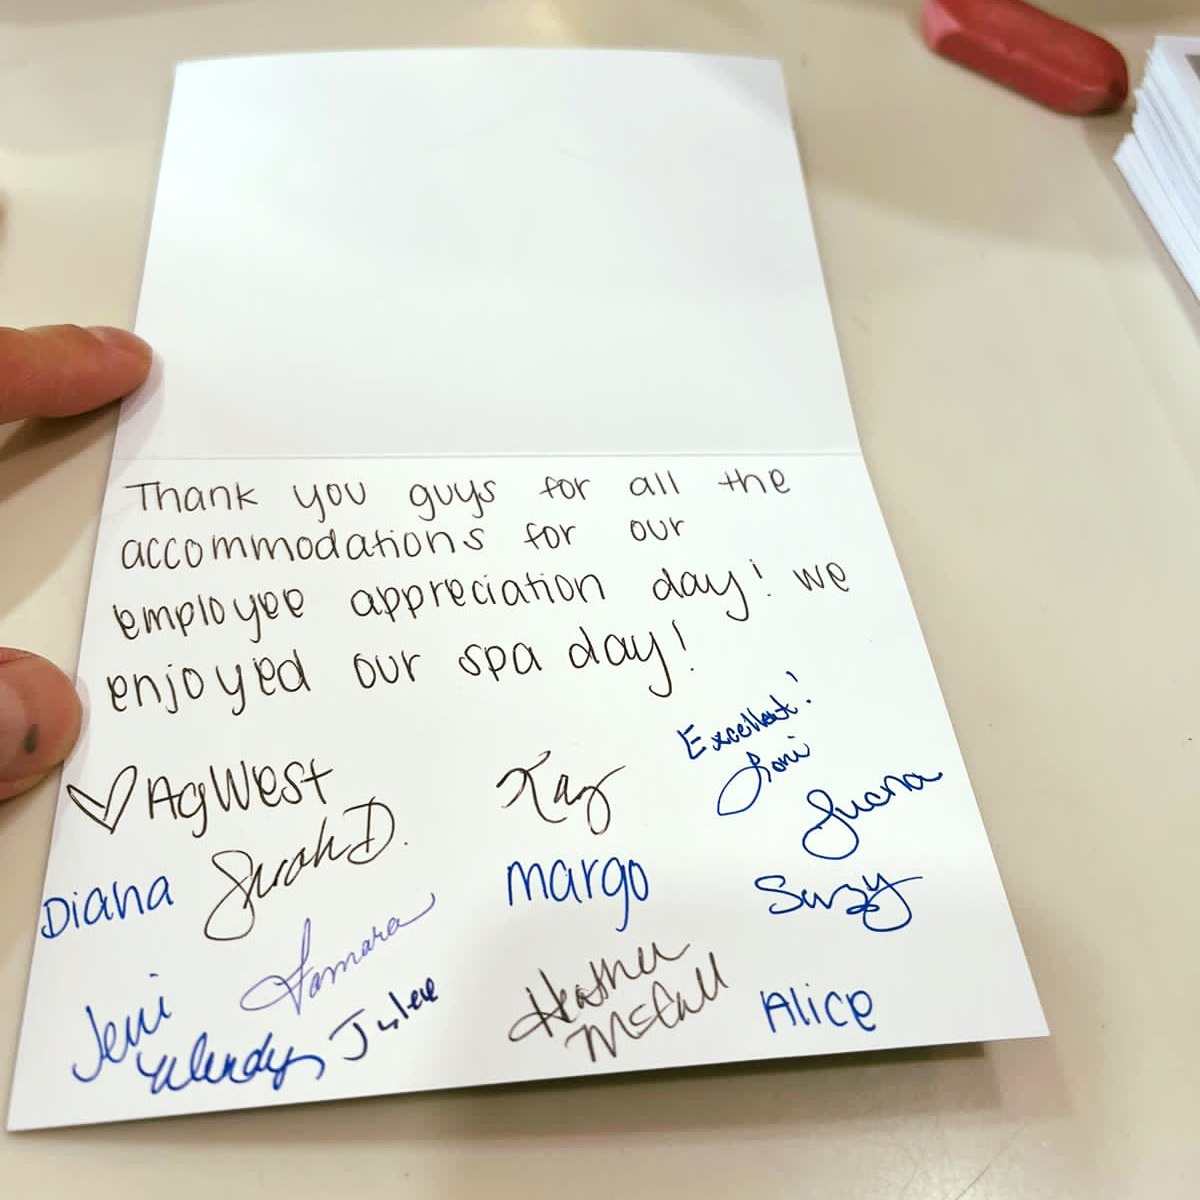 Thank you guys for all the
accommodations for our
employee appreciation day! we
enjoyed our spa day!
♡ AgWest
Excellent!
Loni
Kay
Juana
Sarah D.
Diana
Margo
Suzy
Tamara
Jeni
Wendy
Julene
Heather
McCall
Alice